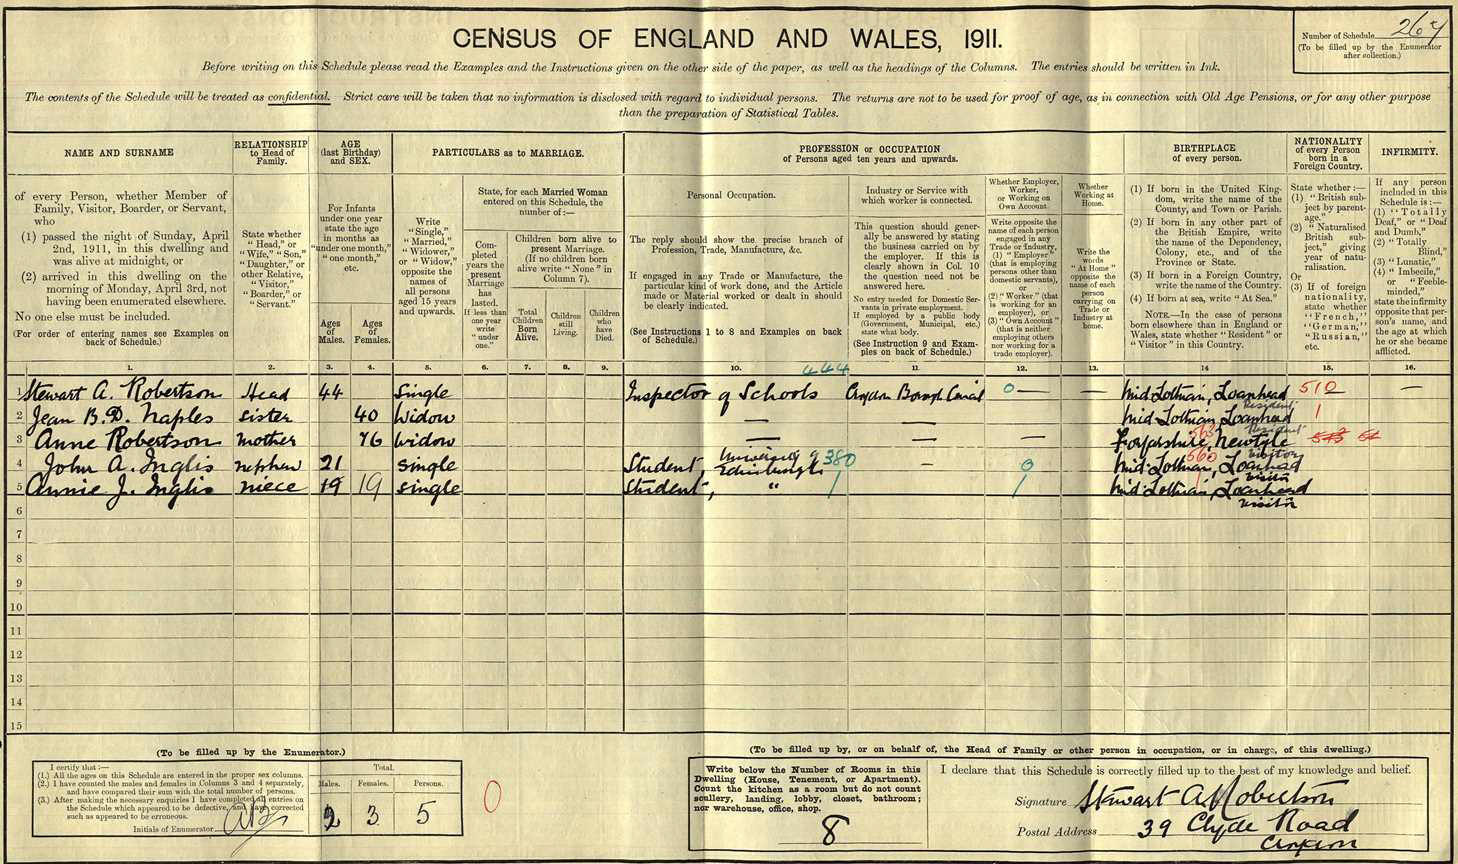 CENSUS OF ENGLAND AND WALES, 1911.
Number of Schedule 267
(To be filled up by the Enumerator
after collection.)
Before writing on this Schedule please read the Examples and the Instructions given on the other side of the paper, as well as the headings of the Columns. The entries should be written in Ink.
The contents of the Schedule will be treated as confidential. Strict care will be taken that no information is disclosed with regard to individual persons. The returns are not to be used for proof of age, as in connection with Old Age Pensions, or for any other purpose
than the preparation of Statistical Tables.
NAME AND SURNAME
of every Person, whether Member of
Family, Visitor, Boarder, or Servant,
who
(1) passed the night of Sunday, April
2nd, 1911, in this dwelling and
was alive at midnight, or
(2) arrived in this dwelling on the
morning of Monday, April 3rd, not
having been enumerated elsewhere.
No one else must be included.
(For order of entering names see Examples on
back of Schedule.)
RELATIONSHIP
to Head of
Family.
State whether
"Head," or
"Wife," "Son,"
"Daughter," or
other Relative,
"Visitor,"
"Boarder," or
"Servant."
AGE
(last Birthday)
and SEX.
For Infants
under one year
state the age
in months as
"under one month,"
"one month,"
etc.
Ages
of
Males.
Ages
of
Females.
PARTICULARS as to MARRIAGE.
Write
"Single,"
"Married,"
"Widower,"
or "Widow,"
opposite the
names of
all persons
aged 15 years
and upwards.
State, for each Married Woman
entered on this Schedule, the
number of:—
Com-
pleted
years the
present
Marriage
has
lasted.
If less than
one year
write
"under
one."
Children born alive to
present Marriage.
(If no children born
alive write "None" in
Column 7).
Total
Children
Born
Alive.
Children
still
Living.
Children
who
have
Died.
PROFESSION or OCCUPATION
of Persons aged ten years and upwards.
Personal Occupation.
The reply should show the precise branch of
Profession, Trade, Manufacture, &c.
If engaged in any Trade or Manufacture, the
particular kind of work done, and the Article
made or Material worked or dealt in should
be clearly indicated.
(See Instructions 1 to 8 and Examples on back
of Schedule.)
Industry or Service with
which worker is connected.
This question should gener-
ally be answered by stating
the business carried on by
the employer. If this is
clearly shown in Col. 10
the question need not be
answered here.
No entry needed for Domestic Ser-
vants in private employment.
If employed by a public body
(Government, Municipal, etc.)
state what body.
(See Instruction 9 and Exam-
ples on back of Schedule.)
Whether Employer,
Worker,
or Working on
Own Account.
Write opposite the
name of each person
engaged in any
Trade or Industry,
(1) "Employer"
(that is employing
persons other than
domestic servants),
or
(2) "Worker" (that
is working for an
employer), or
(3) "Own Account"
(that is neither
employing others
nor working for a
trade employer).
Whether
Working at
Home.
Write the
words
"At Home"
opposite the
name of each
person
carrying on
Trade or
Industry at
home.
BIRTHPLACE
of every person.
(1) If born in the United King-
dom, write the name of the
County, and Town or Parish.
(2) If born in any other part of
the British Empire, write
the name of the Dependency,
Colony, etc., and of the
Province or State.
(3) If born in a Foreign Country,
write the name of the Country.
(4) If born at sea, write "At Sea."
NOTE.—In the case of persons
born elsewhere than in England or
Wales, state whether "Resident" or
"Visitor" in this Country.
NATIONALITY
of every Person
born in a
Foreign Country.
State whether :—
(1) "British sub-
ject by parent-
age."
(2) "Naturalised
British sub-
ject," giving
year of natu-
ralisation.
Or
(3) If of foreign
nationality,
state whether
"French,"
"German,"
"Russian,"
etc.
INFIRMITY.
If any person
included in this
Schedule is:—
(1) "Totally
Deaf," or "Deaf
and Dumb,"
(2) "Totally
Blind,"
(3) "Lunatic,"
(4) "Imbecile,"
or "Feeble-
minded,"
state the infirmity
opposite that per-
son's name, and
the age at which
he or she became
afflicted.
1. 2. 3. 4. 5. 6. 7. 8. 9. 10. 11. 12. 13. 14 15. 16.
444
1 Stewart A. Robertson Head 44 Single Inspector of Schools Croydon Borough Council 0 — — Mid Lothian, Loanhead 510 —
Resident
2 Jean B.D. Naples Sister 40 Widow — — Mid Lothian, Loanhead 1
563 Resident
3 Anne Robertson mother 76 Widow — — — — Forfarshire, Newtyle 543
4 John A. Inglis nephew 21 single Student, University of Edinburgh 380 — 0 Mid Lothian, Loanhead
560 visitor
5 Annie J. Inglis niece 19 19 single Student, " 1 1 Mid Lothian, Loanhead
visitor
visitor
6
7
8
9
10
11
12
13
14
15
(To be filled up by the Enumerator.)
I certify that:—
(1.) All the ages on this Schedule are entered in the proper sex columns.
(2.) I have counted the males and females in Columns 3 and 4 separately,
and have compared their sum with the total number of persons.
(3.) After making the necessary enquiries I have completed all entries on
the Schedule which appeared to be defective, and have corrected
such as appeared to be erroneous.
Initials of Enumerator
Total.
Males. Females. Persons.
2 3 5
0
(To be filled up by, or on behalf of, the Head of Family or other person in occupation, or in charge, of this dwelling.)
Write below the Number of Rooms in this
Dwelling (House, Tenement, or Apartment).
Count the kitchen as a room but do not count
scullery, landing, lobby, closet, bathroom;
nor warehouse, office, shop.
8
I declare that this Schedule is correctly filled up to the best of my knowledge and belief.
Signature Stewart A Robertson
Postal Address 39 Clyde Road
Croydon